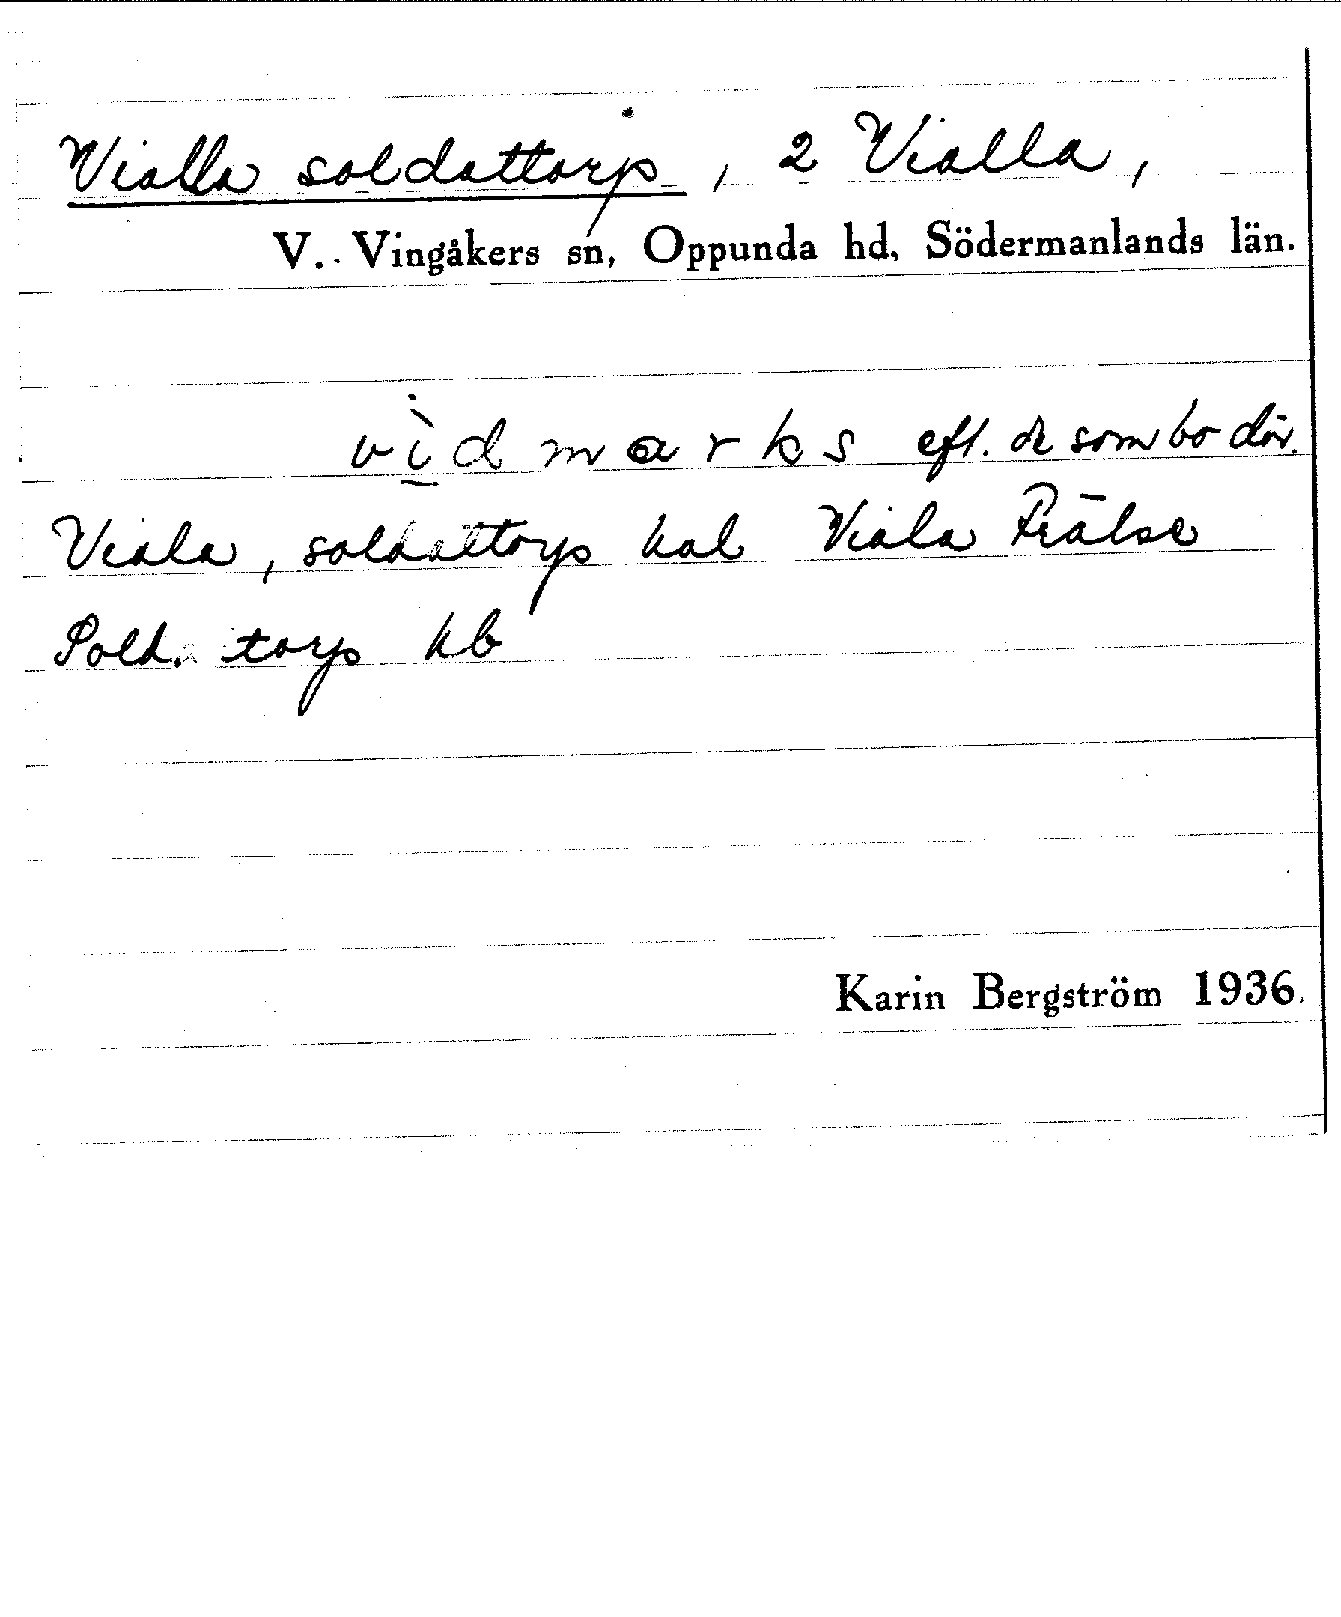 Vialla soldattorp, 2 Vialla,
V. Vingåkers sn, Oppunda hd, Södermanlands län.
vìdmarks eft. de som bo där.
Viala, soldattorp hal Viala Frälse
Sold. torp kb
Karin Bergström 1936.